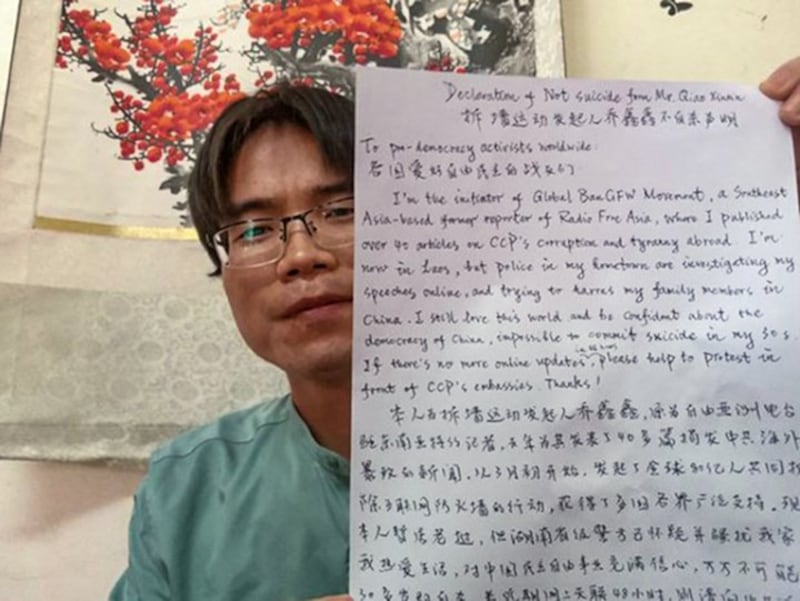 Declaration of Not suicide from Mr. Qiao Xinxin
拆墙运动发起人乔鑫鑫不自杀声明
To pro-democracy activists worldwide:
各国爱好自由民主的战友们:
I'm the initiator of Global BanGFW Movement, a Southeast
Asia-based former reporter of Radio Free Asia, where I published
over 40 articles on CCP's corruption and tyranny abroad. I'm
now in Laos, but police in my hometown are investigating my
speeches online, and trying to harass my family members in
China. I still love this world and be confident about the
democracy of China, impossible to commit suicide in my 30s.
If there's no more online updates in 48 hours, please help to protest in
front of CCP's embassies. Thanks!
本人乃拆墙运动发起人乔鑫鑫,原为自由亚洲电台
驻东南亚特约记者,去年为其发表了40多篇揭发中共海外
暴政的新闻,从3月初开始,发起了全球 亿人共同拆
除互联网防火墙的行动,获得了多国各界广泛支持。现
本人暂居老挝,但湖南省级警方已怀疑并骚扰我家
我热爱生活,对中国民主自由事业充满信心,万万不可能
30多岁就自杀。若我期间上失联48小时,则请